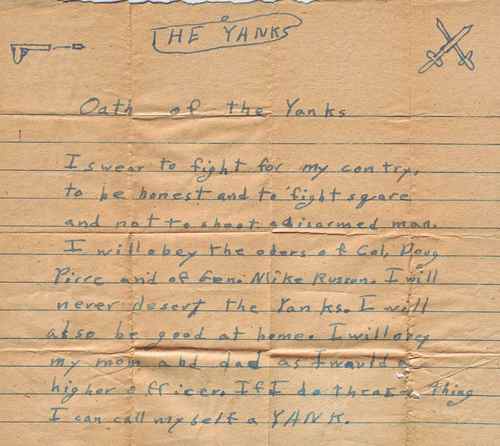 THE YANKS
Oath of the Yanks
I swear to fight for my contry,
to be honest and to fight sqare
and not to shoot a disarmed man.
I will obey the oders of Col. Doug
Pirre and of Gen. Mike Russon. I will
never desert the Yanks. I will
also be good at home. I will obey
my mom and dad as I would a
higher officer. If I do these thing
I can call myself a YANK.